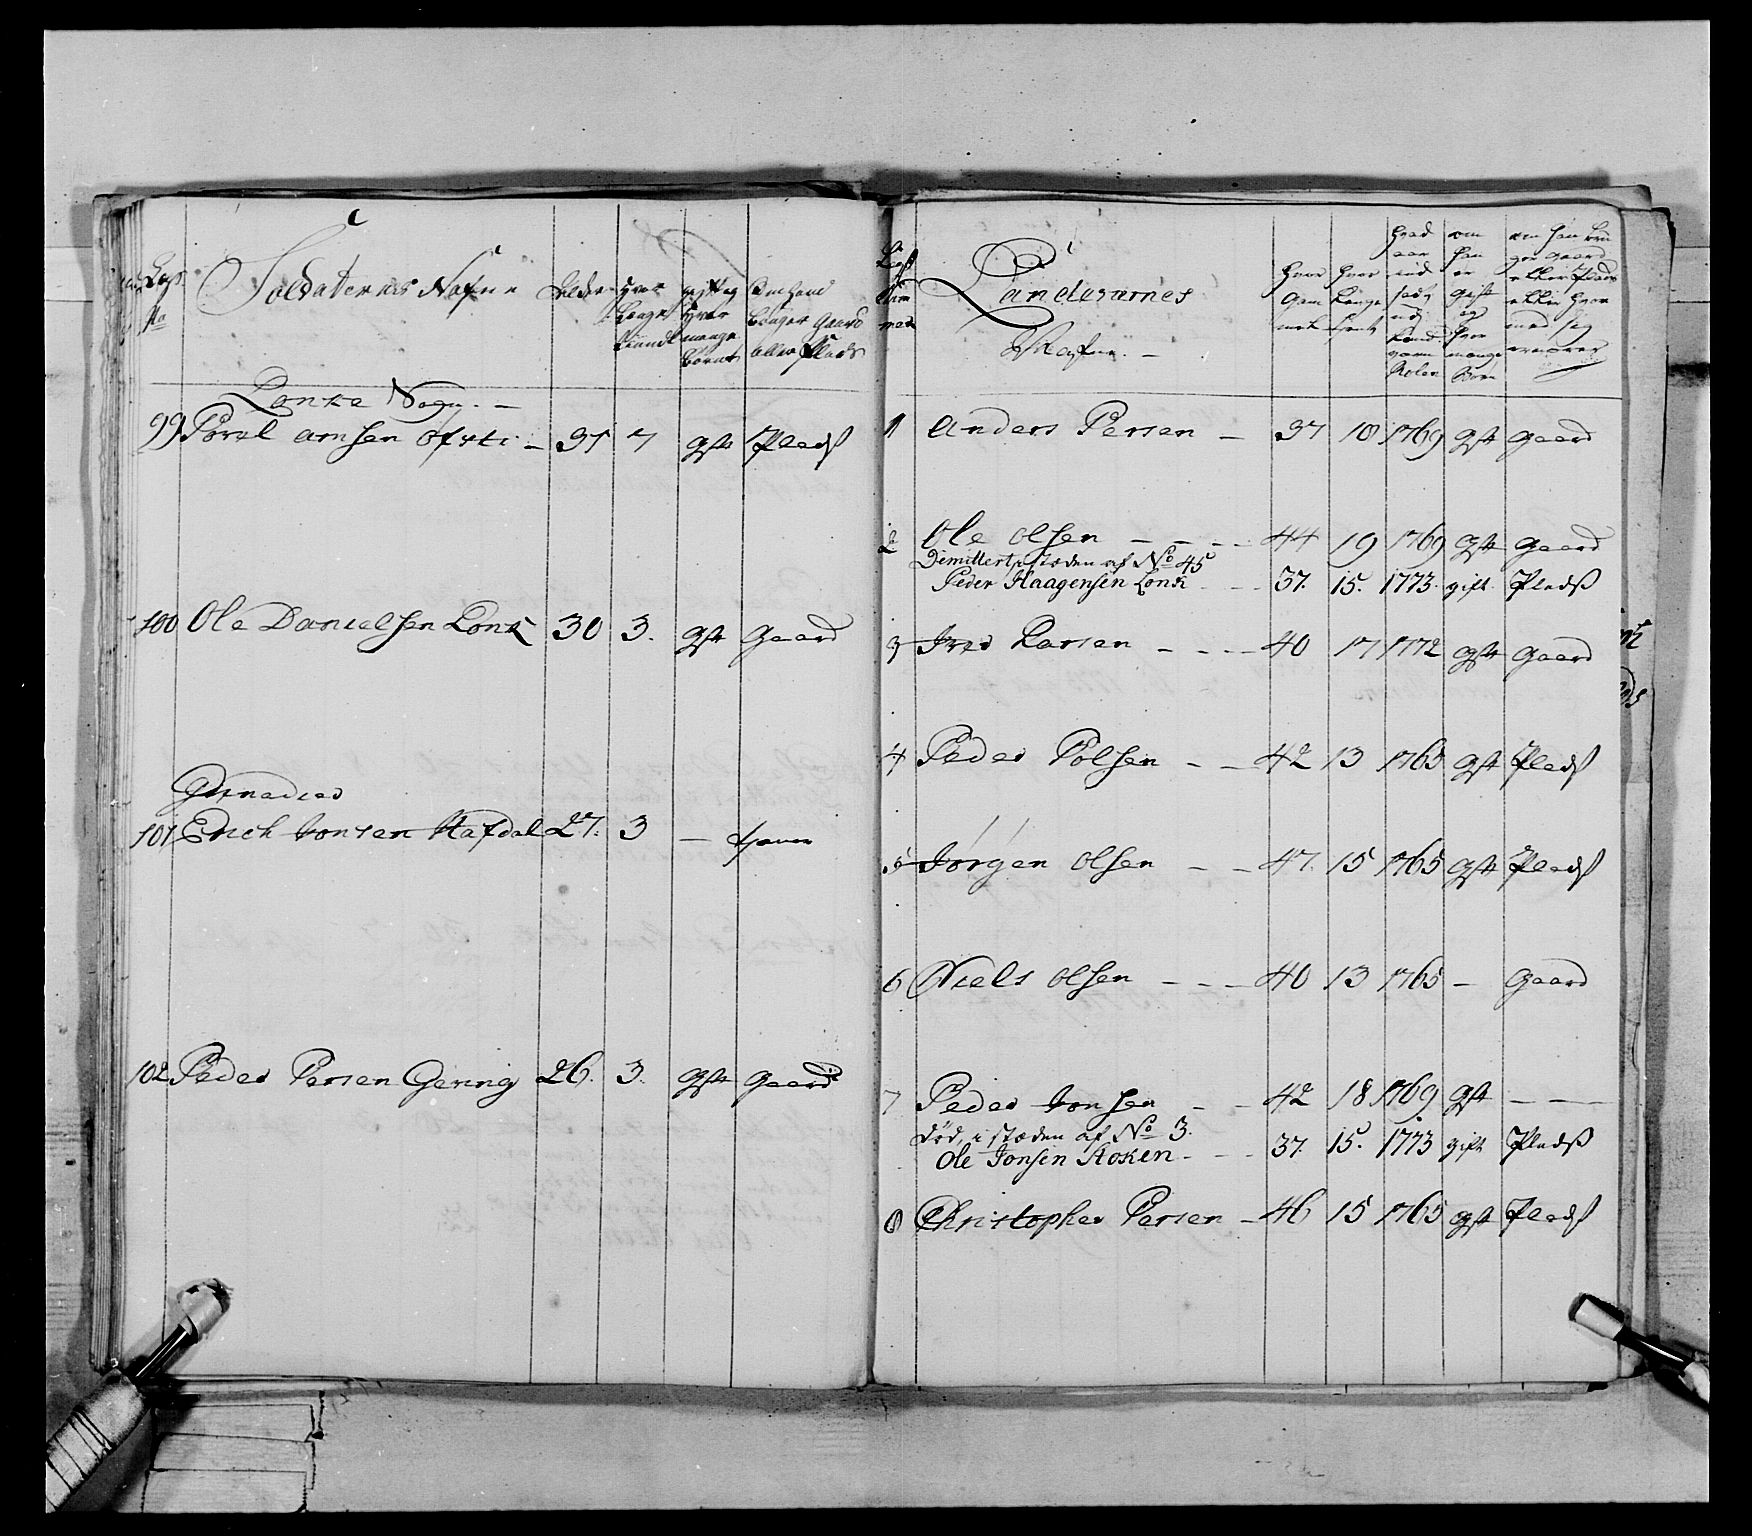 Soldaternes Nafne
Alder
Hvor Længe tiendt
gift og Hvor mange børn
Om hand bruger Gaard eller Plads
Lonke Sogn. —
99 Povel Arnsen Øfsti — 37 7 gift Pladß
100 Ole Danielsen Lonk 30 3. gift Gaard
101 Erich Jonsen Hafdal 27. 3 —
102 Peder Persen Gering 26. 3. gift Gaard
Nafne. —
hvor Gam mel
hvor Længe tient
om han er gift og hvor mange Børn
1 Anders Persen — 37 10 1769 gift Gaard
2 Ole Olsen — — — 44 19 1769 gift Gaard
Dimittert, i stæden af No 45
Peder Haagensen Lonk — — 37. 15. 1773. gift. Pladß
3 Larsen — — — 40 17 1772 gift Gaard
4 Peder Polsen — — 42 13 1765 gift Pladß
5 Jørgen Olsen — — 47. 15 1765 gift Pladß
6 Niels Olsen — — — 40 13 1765 — Gaard
7 Peder Jonsen — — 42 18 1769 gift — —
død, i stæden af No 3.
Ole Jonsen Moken — — 37. 15. 1773 gift Pladß
8 Christopher Persen — 46 15 1765 gift Pladß